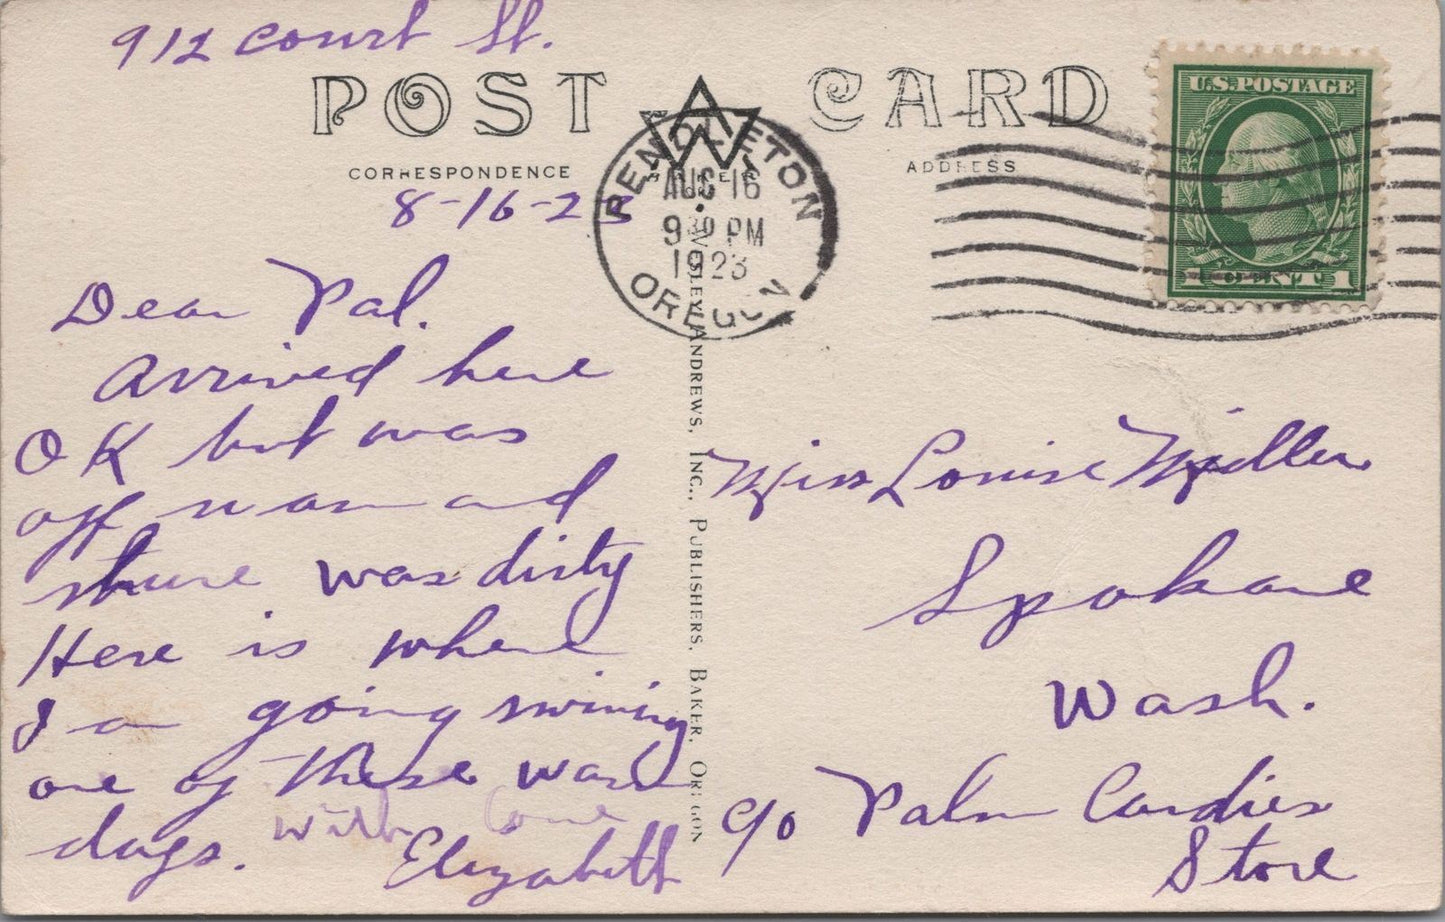 912 Court St.
POST CARD
CORRESPONDENCE
ADDRESS
PENDLETON
AUG 16
930 PM
1923
OREGON
U.S. POSTAGE
1 CENT 1
8-16-23
Dear Pal.
Arrived here
OK but was
off and
shure was dirty
Here is where
I am going swiming
one of these warm
days. With love
Elizabeth
WESLEY ANDREWS, INC., PUBLISHERS, BAKER, OREGON
Miss Louise Miller
Spokane
Wash.
c/o Palm Candies
Store